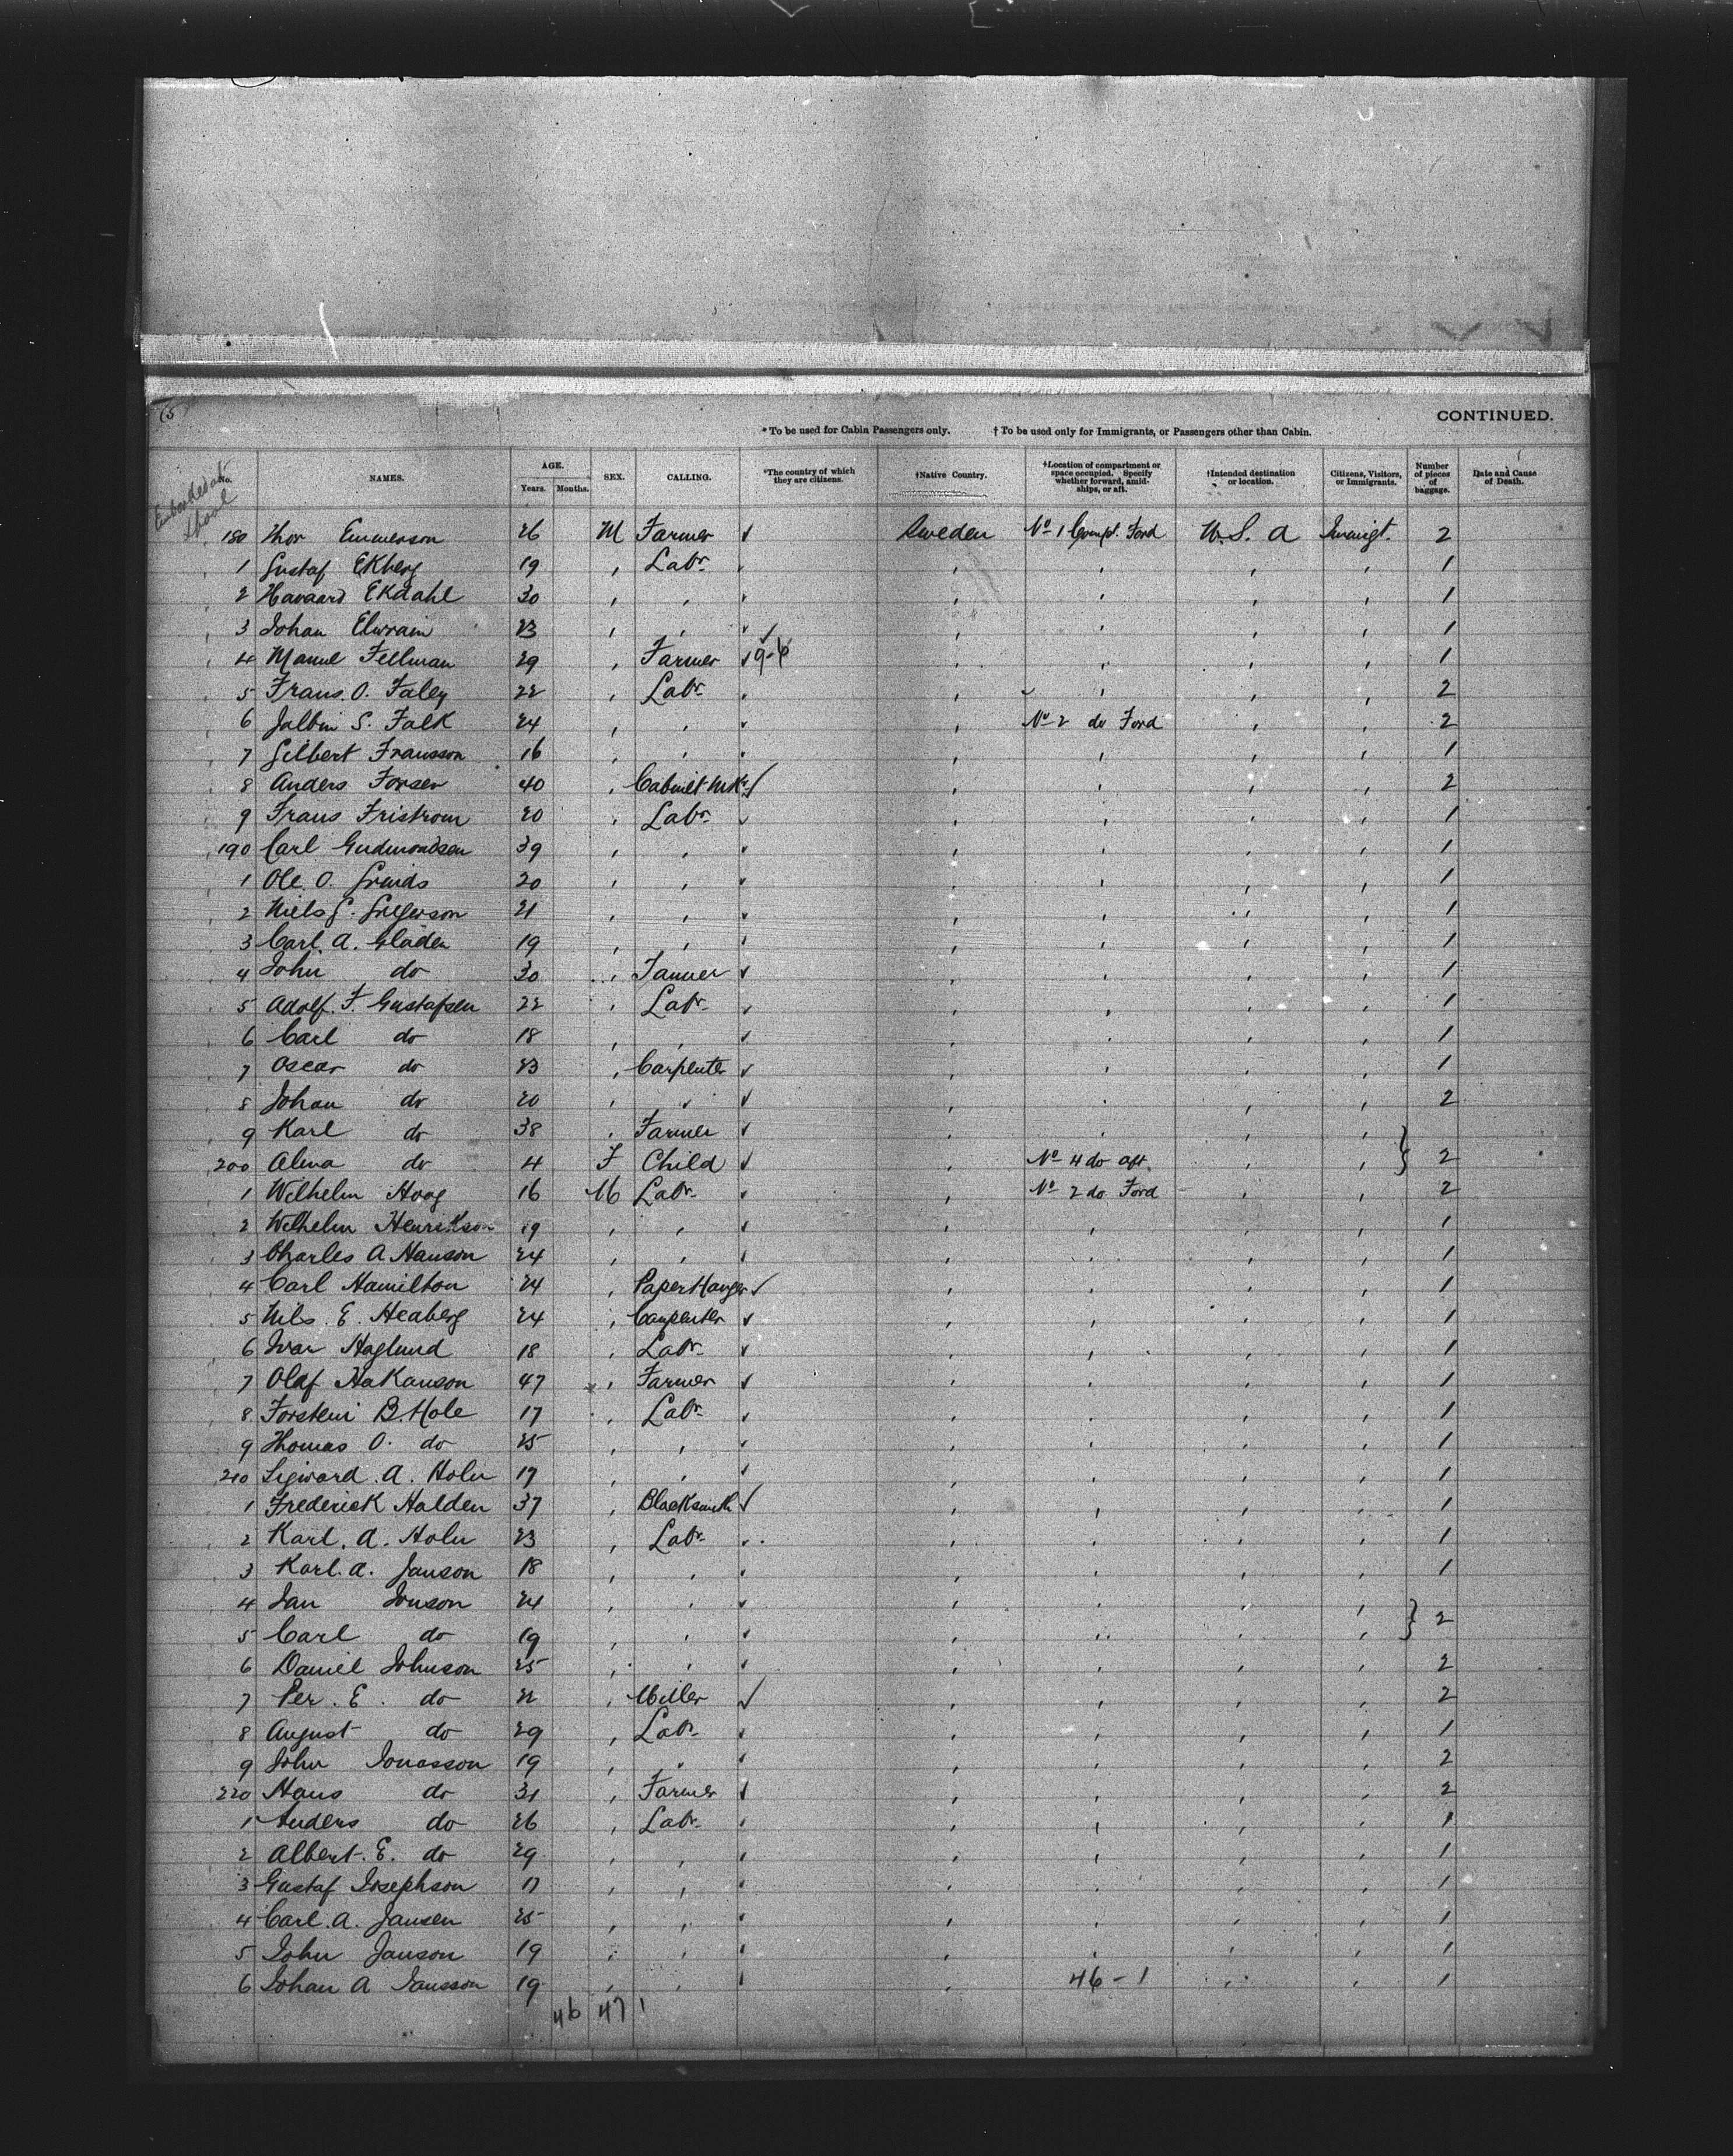 (5)
CONTINUED.
* To be used for Cabin Passengers only. † To be used only for Immigrants, or Passengers other than Cabin.
NAMES. AGE. Years. Months. SEX. CALLING. *The country of which they are citizens. †Native Country. †Location of compartment or space occupied. Specify whether forward, amidships, or aft. †Intended destination or location. Citizens, Visitors, or Immigrants. Number of pieces of baggage. Date and Cause of Death.
180 Thor Emmerson 26 M Farmer ✓ Sweden No 1 Compt. Ford U.S.A Immigt. 2
1 Gustaf Ekberg 19 , Labr. , , , , 1
2 Havaard Ekdahl 30 , , , , , , 1
3 Johan 23 , , ✓ , , , , 1
4 Manne Fellman 29 , Farmer ✓ 9-6 , , , , 1
5 Frans. O. Faley 22 , Labr. , , , , 2
6 S. Falk 24 , , ✓ , No 2 do Ford , , 2
7 Gilbert Fransson 16 , , , , , , 1
8 Anders Forsen 40 , Cabinet Mkr ✓ , , , , 2
9 Frans Fristrom 20 , Labr. ✓ , , , , 1
190 Carl Gudmondsen 39 , , ✓ , , , , 1
1 Ole. O. 20 , , ✓ , , , , 1
2 Niels G. 21 , , ✓ , , , , 1
3 Carl. A. Gladen 19 , , , , , , 1
4 John do 30 , ✓ , , , , 1
5 Adolf. F. Gustafsen 22 , Labr. ✓ , , , , 1
6 Carl do 18 , , ✓ , , , , 1
7 Oscar do 23 , Carpenter ✓ , , , , 1
8 Johan do 20 , , ✓ , , , , 2
9 Karl do 38 , Farmer ✓ , , , , }
200 Alma do 4 F Child ✓ No 4 do aft. , , } 2
1 Wilhelm Hoog 16 M Labr. ✓ , No 2 do Ford , , 2
2 Wilhelm Henrikson 19 , , ✓ , , , , 1
3 Charles A Hanson 24 , , ✓ , , , , 1
4 Carl Hamilton 24 , Paper Hanger ✓ , , , , 1
5 Nils. E. Heaberg 24 , Carpenter ✓ , , , , 1
6 Ivar Haglund 18 , Labr. ✓ , , , , 1
7 Olaf Hakanson 47 , Farmer ✓ , , , , 1
8 B. Hole 17 , Labr. ✓ , , , , 1
9 Thomas O. do 25 , , ✓ , , , , 1
210 Sigward. A. Holm 17 , , ✓ , , , , 1
1 Frederick Halden 37 , Blacksmith ✓ , , , , 1
2 Karl. A. Holm 23 , Labr. ✓ , , , , 1
3 Karl. A. Janson 18 , , ✓ , , , , 1
4 Jan Jonson 24 , , ✓ , , , , }
5 Carl do 19 , , ✓ , , , , } 2
6 Daniel Johnson 25 , , ✓ , , , , 2
7 Per. E. do 22 , Miller ✓ , , , , 2
8 August do 29 , Labr. ✓ , , , , 1
9 John Jonasson 19 , , ✓ , , , , 2
220 Hans do 31 , Farmer ✓ , , , , 2
1 Anders do 26 , Labr. ✓ , , , , 1
2 Albert. E. do 29 , , ✓ , , , , 1
3 Gustaf Josephson 17 , , ✓ , , , , 1
4 Carl. A. Jansen 25 , , ✓ , , , , 1
5 John Janson 19 , , ✓ , , , , 1
6 Johan A Jansson 19 , , , 46 - 1 , , 1
46 47 1